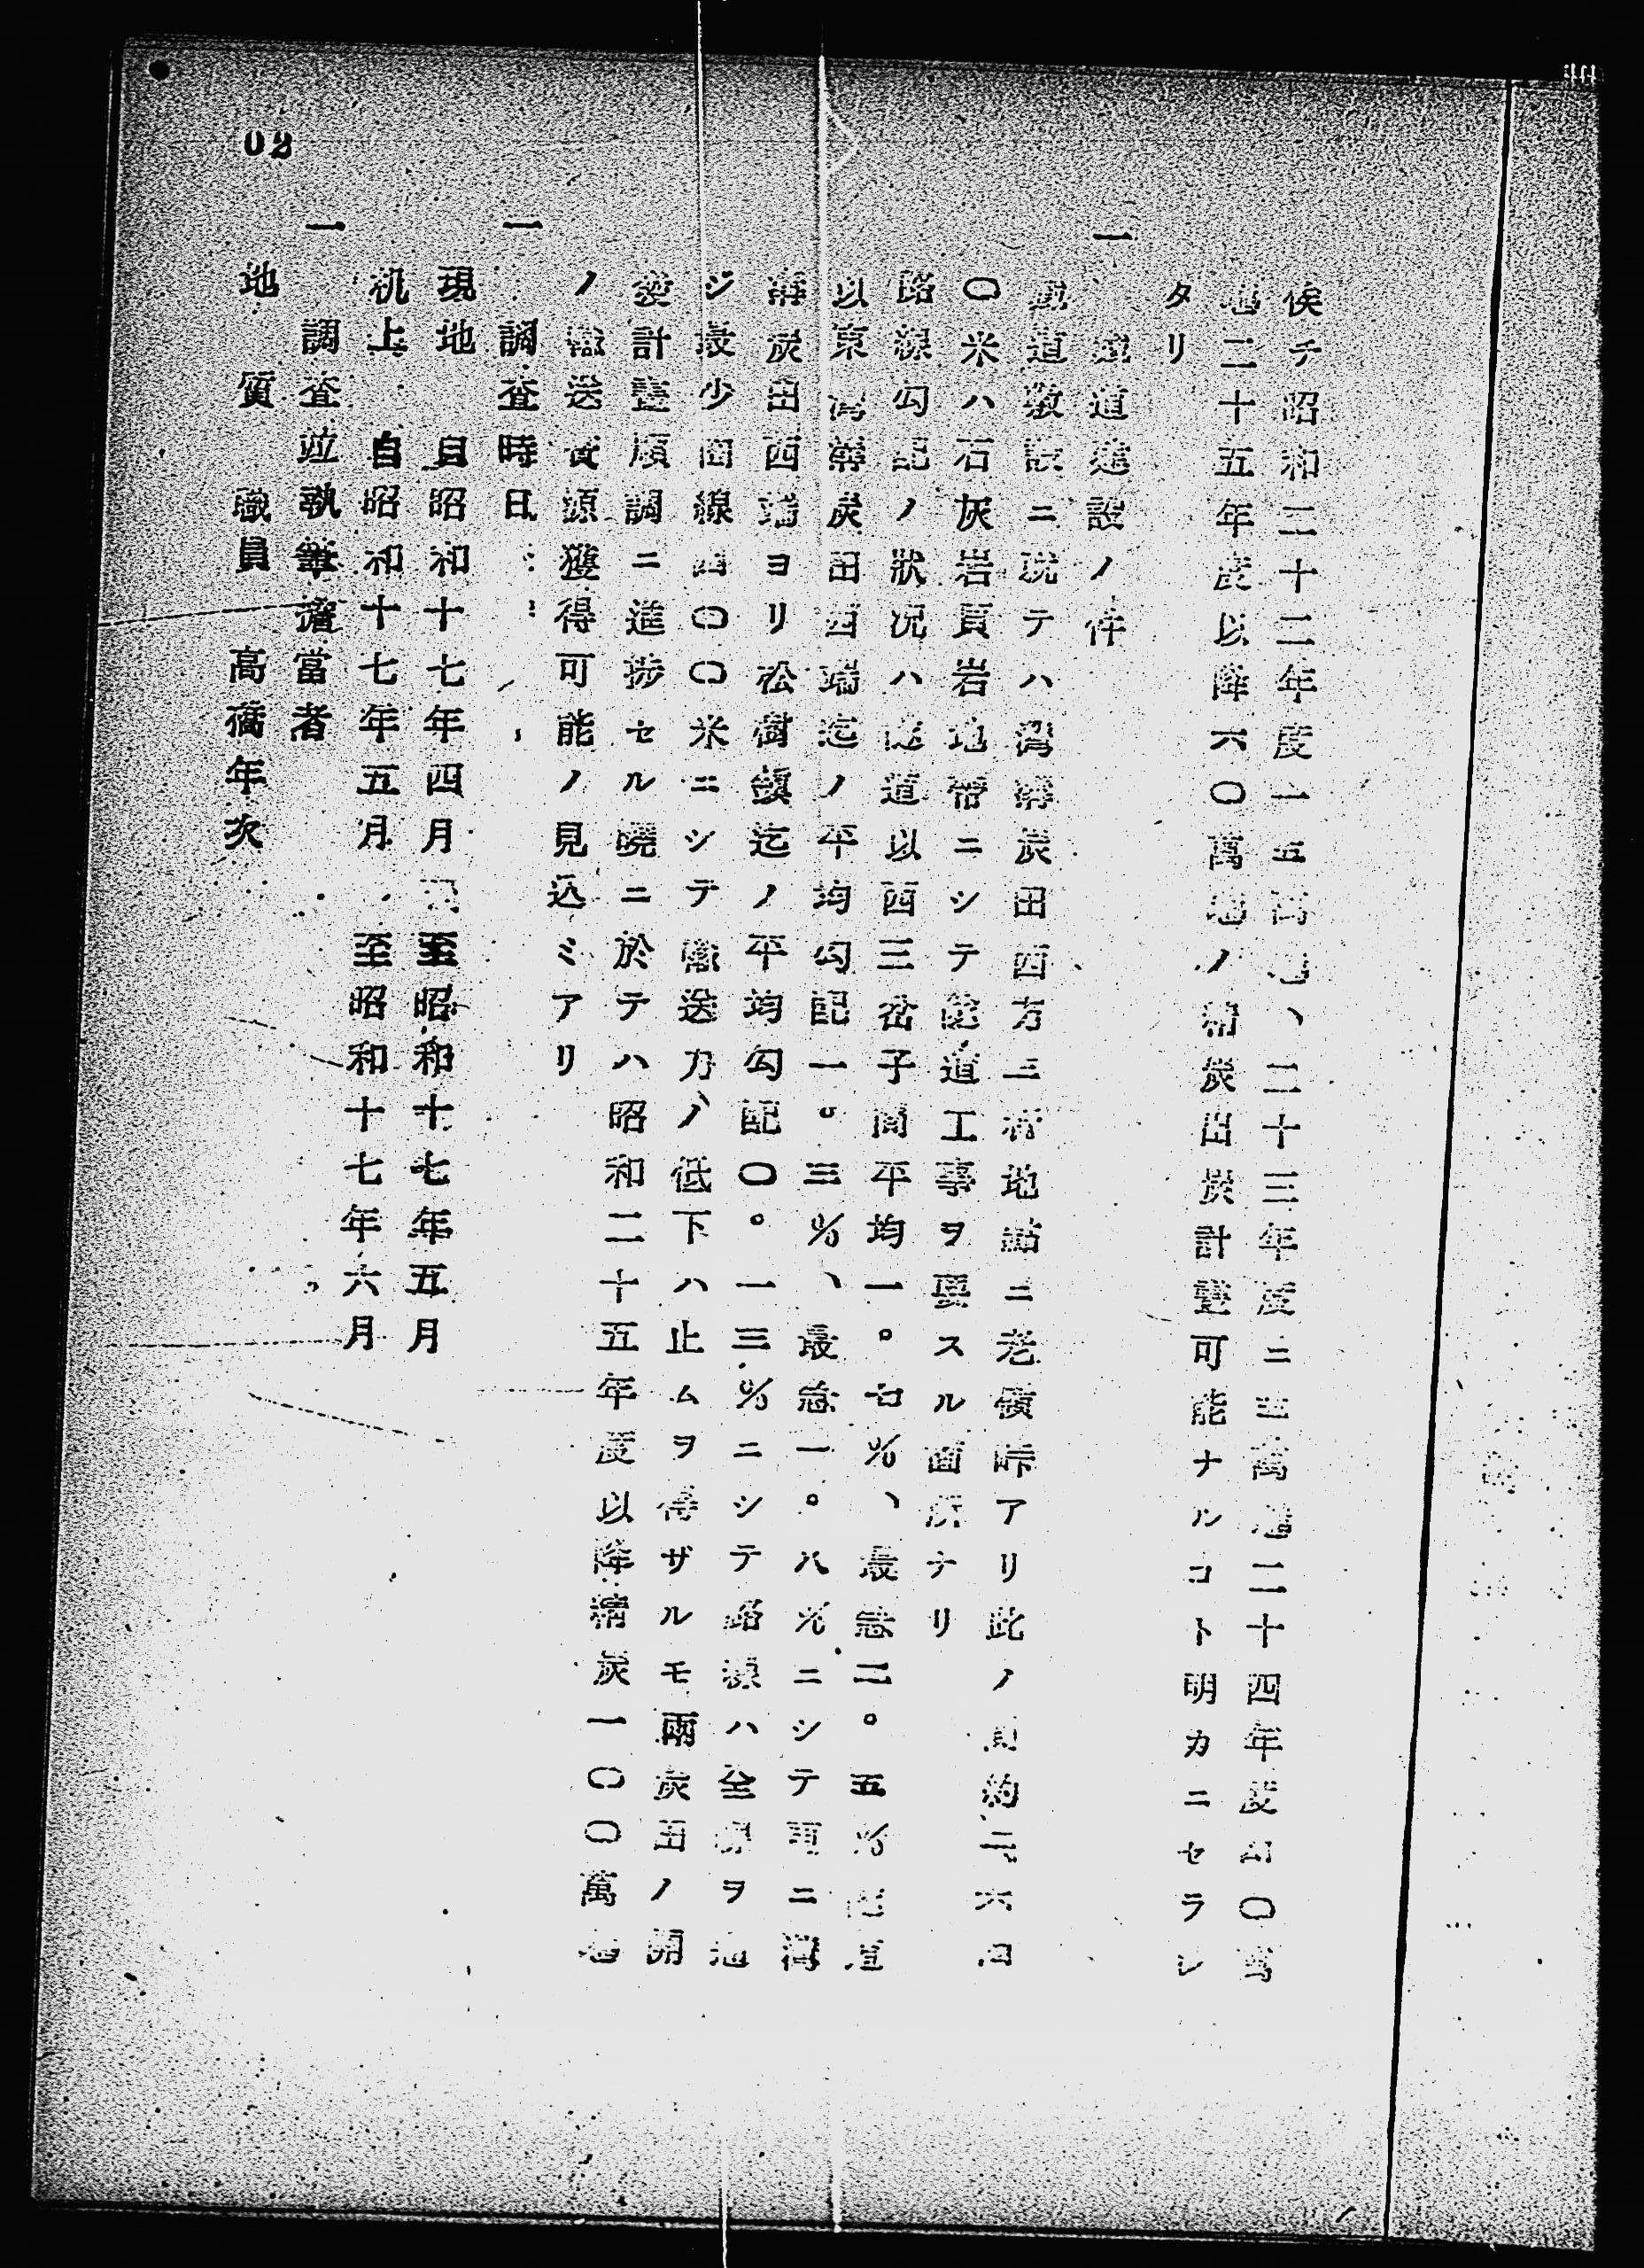 俟テ昭和二十二年度一五萬瓲、二十三年度ニ三萬瓲二十四年度四〇萬
瓲二十五年度以降六〇萬瓲ノ精炭出炭計畫可能ナルコト明カニセラレ
タリ
一 鐵道建設ノ件
鐵道敷設ニ就テハ溝炭田西方三粁地點ニ老嶺峠アリ此ノ間約二六四
〇米ハ石灰岩頁岩地帶ニシテ隧道工事ヲ要スル箇所ナリ
路線勾配ノ狀況ハ隧道以西三岔子間平均一。七%、最急二。五%隧道
以東溝炭田西端迄ノ平均勾配一。三%、最急一。八%ニシテ更ニ
溝炭田西端ヨリ松樹鎭迄ノ平均勾配〇。一三%ニシテ路線ハ全線ヲ通
ジ最少曲線四〇〇米ニシテ輸送力ノ低下ハ止ムヲ得ザルモ兩炭田ノ開
發計畫順調ニ進捗セル曉ニ於テハ昭和二十五年度以降精炭一〇〇萬瓲
ノ輸送資源獲得可能ノ見込ミアリ
一 調査時日
現地 自昭和十七年四月 至昭和十七年五月
机上 自昭和十七年五月 至昭和十七年六月
一 調査竝執筆擔當者
地質 職員 高橋年次
02